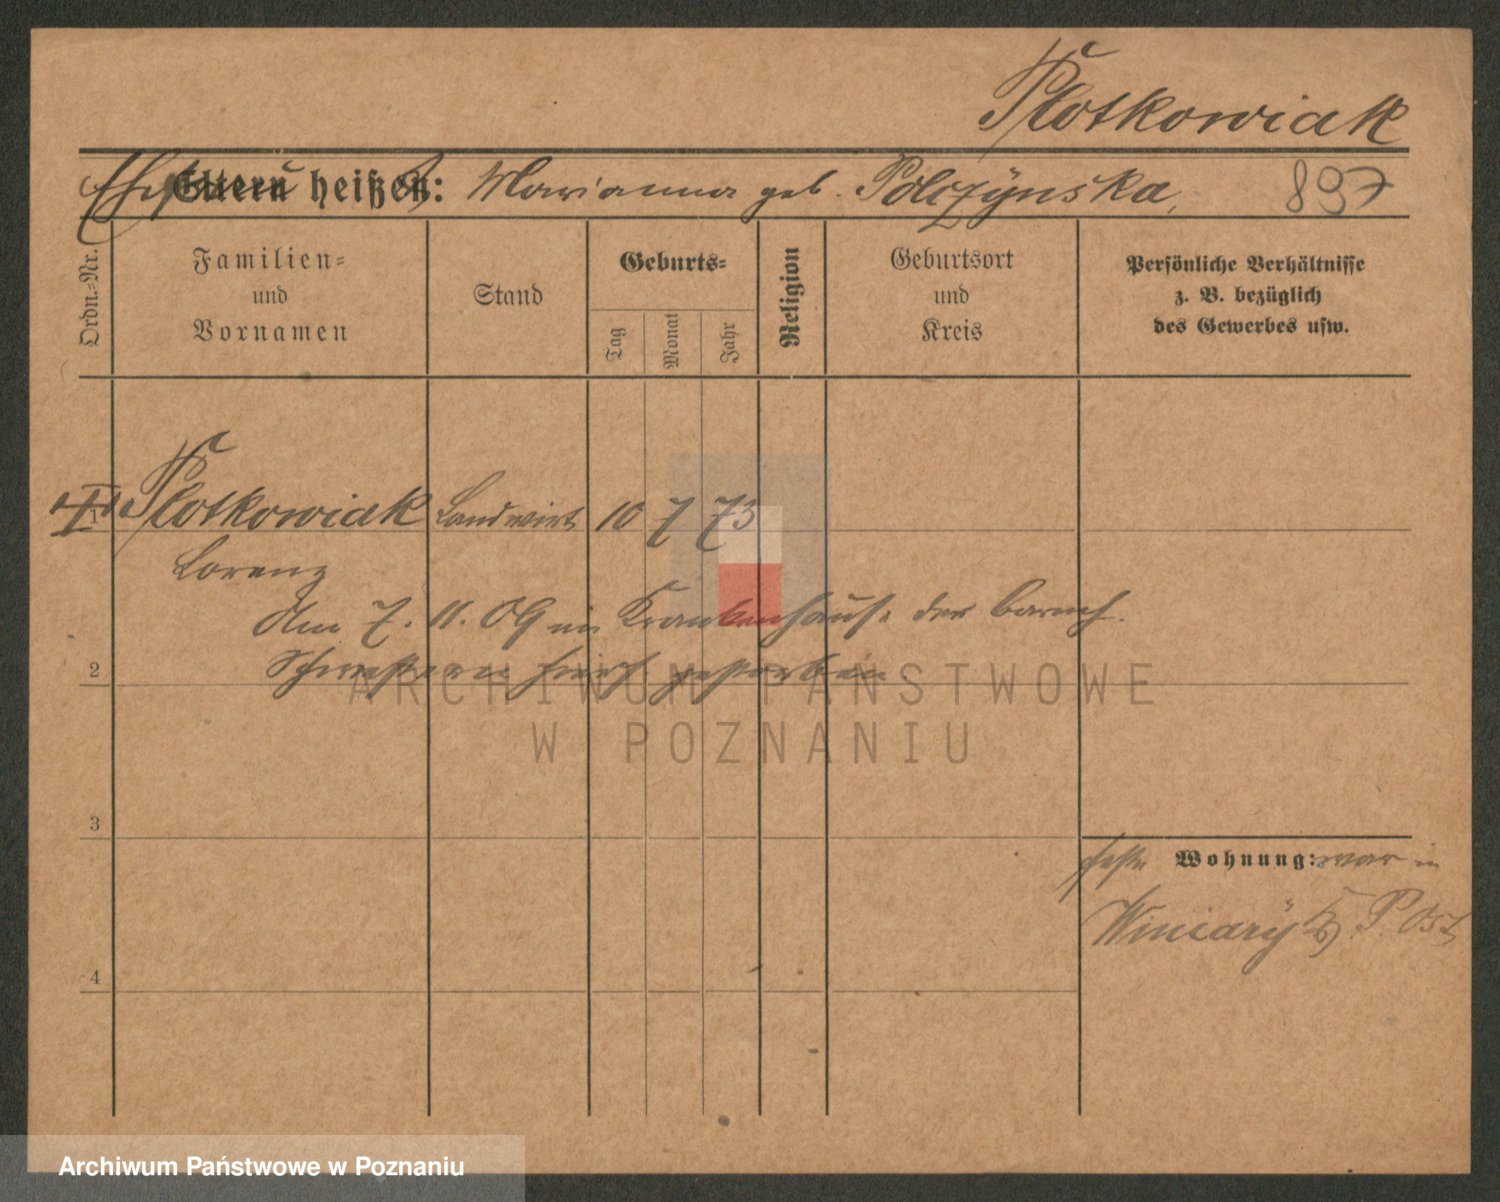 Plotkowiak
Ehefrau
Eltern heißen: Marianna geb. Polczÿnska, 897
Ordn.-Nr.
Familien-
und
Vornamen
Stand
Geburts-
Tag
Monat
Jahr
Religion
Geburtsort
und
Kreis
Persönliche Verhältnisse
z. B. bezüglich
des Gewerbes usw.
1 Plotkowiak Landwirt 10 7 73
Lorenz
Am 7. 11. 09 im Krankenhause der barmh.
2 Schwestern hier gestorben
3
Wohnung: war in
Winiarÿ P. Ost
4
ARCHIWUM PAŃSTWOWE
W POZNANIU
Archiwum Państwowe w Poznaniu